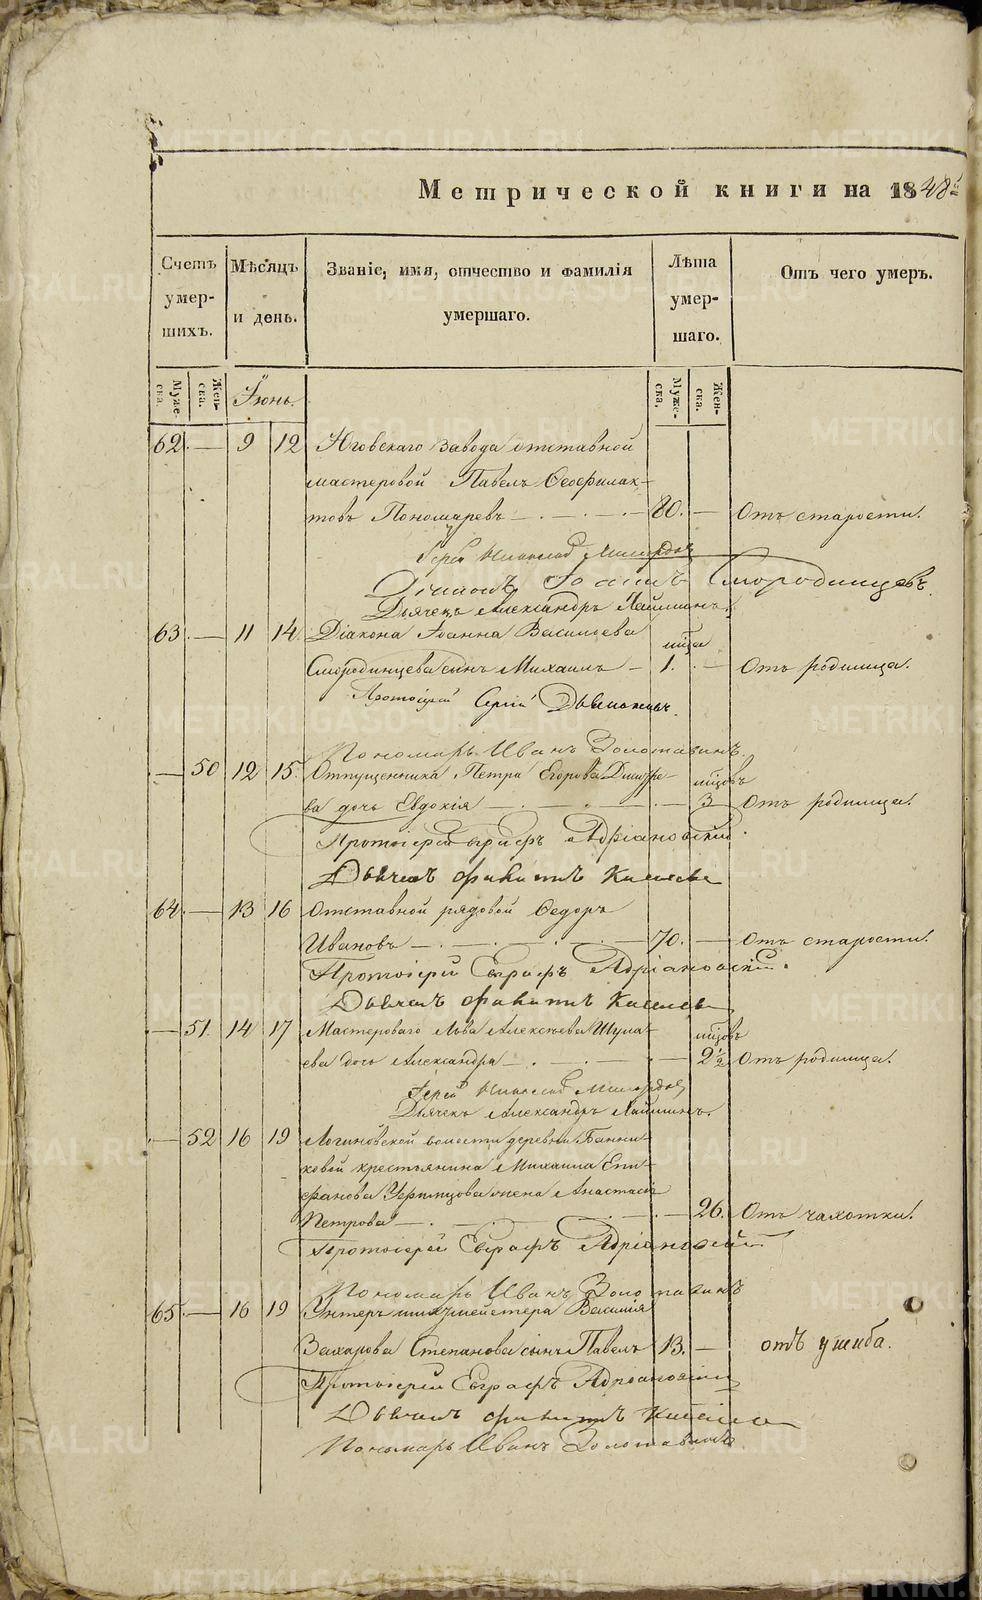 Метрической книги на 1848й
Счетъ умер- шихъ.
Мѣсяцъ и день.
Званіе, имя, отчество и фамилія умершаго.
Лѣта умер- шаго.
Отъ чего умеръ.
Муже- ска.
Жен- ска.
Іюнь.
Муже- ска.
Жен- ска.
62. — 9 12 Юговскаго завода отставной
мастеровой Павелъ Ѳеофилак-
товъ Пономаревъ — 80. — Отъ старости.
Іерей Николай
Діаконъ Іоаннъ Смородинцевъ.
Дьячекъ Александръ
63. — 11 14. Діакона Іоанна Васильева
Смородинцева сынъ Михаилъ — 1. — Отъ родимца.
Протоіерей Сергій
Пономарь Иванъ Золотавинъ.
— 50 12 15. Отпущенника Петра Егорова Дмитріе-
ва дочь Евдокія — 3 Отъ родимца.
Протоіерей Евграфъ Адріановскій.
Дьячекъ Киселевъ
64. — 13 16 Отставной рядовой Ѳедоръ
Ивановъ — 70. — Отъ старости.
Протоіерей Евграфъ Адріановскій.
Дьячекъ Киселевъ
— 51. 14 17 Мастероваго Льва Алексѣева
ева дочь Александра — 2½ Отъ родимца.
Іерей Николай
Дьячекъ Александръ
— 52 16 19 Логиновской волости деревни Банни-
ковой крестьянина Михаила Епи-
фанова жена Анастасія
Петрова — 26. Отъ чахотки.
Протоіерей Евграфъ Адріановскій
Пономарь Иванъ Золотавинъ
65. — 16 19 Унтеръ шихтмейстера Василія
Захарова Степанова сынъ Павелъ 13. — отъ ушиба.
Протоіерей Евграфъ Адріановскій
Дьячекъ Киселевъ
Пономарь Иванъ Золотавинъ.
METRIKI.GASO-URAL.RU